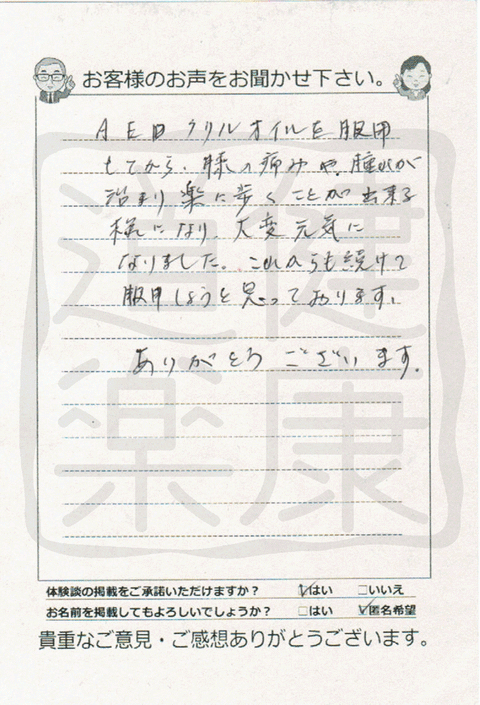 お客様のお声をお聞かせ下さい。
AED クリルオイルを服用
してから、膝の痛みや、腫れが
治まり楽に歩くことが出来る
様になり、大変元気に
なりました。これからも続けて
服用しようと思っております。
ありがとうございます。
健康
道楽
体験談の掲載をご承諾いただけますか? はい いいえ
お名前を掲載してもよろしいでしょうか? はい 匿名希望
貴重なご意見・ご感想ありがとうございます。